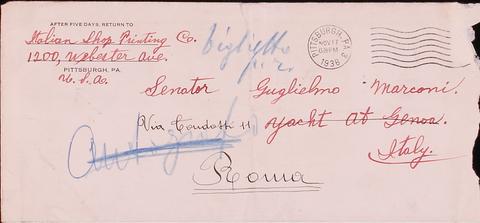 AFTER FIVE DAYS, RETURN TO
Italian Shop Printing Co.
1200, Webester Ave.
PITTSBURGH, PA.
U. S. A.
biglietto
p. r.
PITTSBURGH, PA. 3
NOV 17
1936
Senator Guglielmo Marconi.
Yacht At Genoa.
Italy.
Via Condotti 11
Autografo
Roma